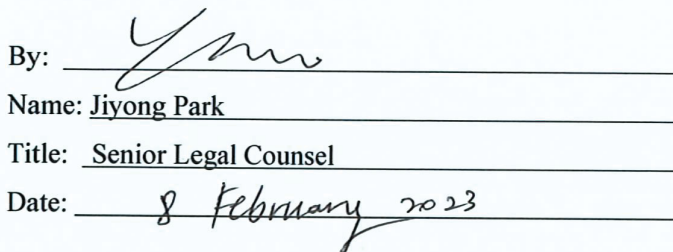 By:
Name: Jiyong Park
Title: Senior Legal Counsel
Date: 8 February 2023